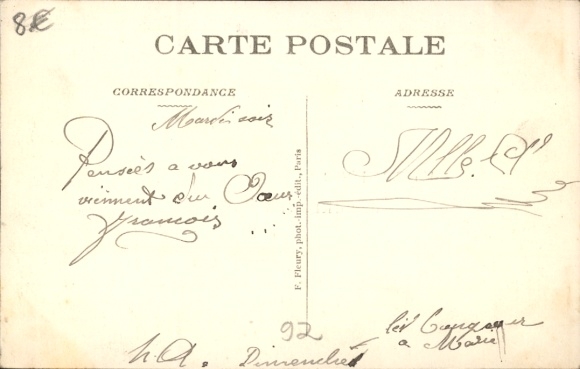 8€
CARTE POSTALE
CORRESPONDANCE
ADRESSE
Mardi soir
Pensées a vous
viennent du Cœur
François
Mlle.
F. Fleury, phot.-imp.-édit., Paris
92
a Marie
Dimanche